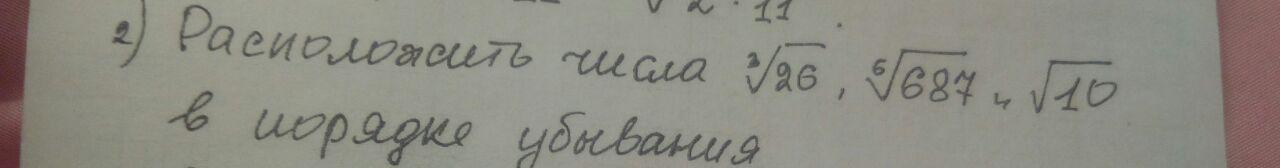 √2·11.
2) Расположить числа ∛26, ⁶√687 и √10
в порядке убывания